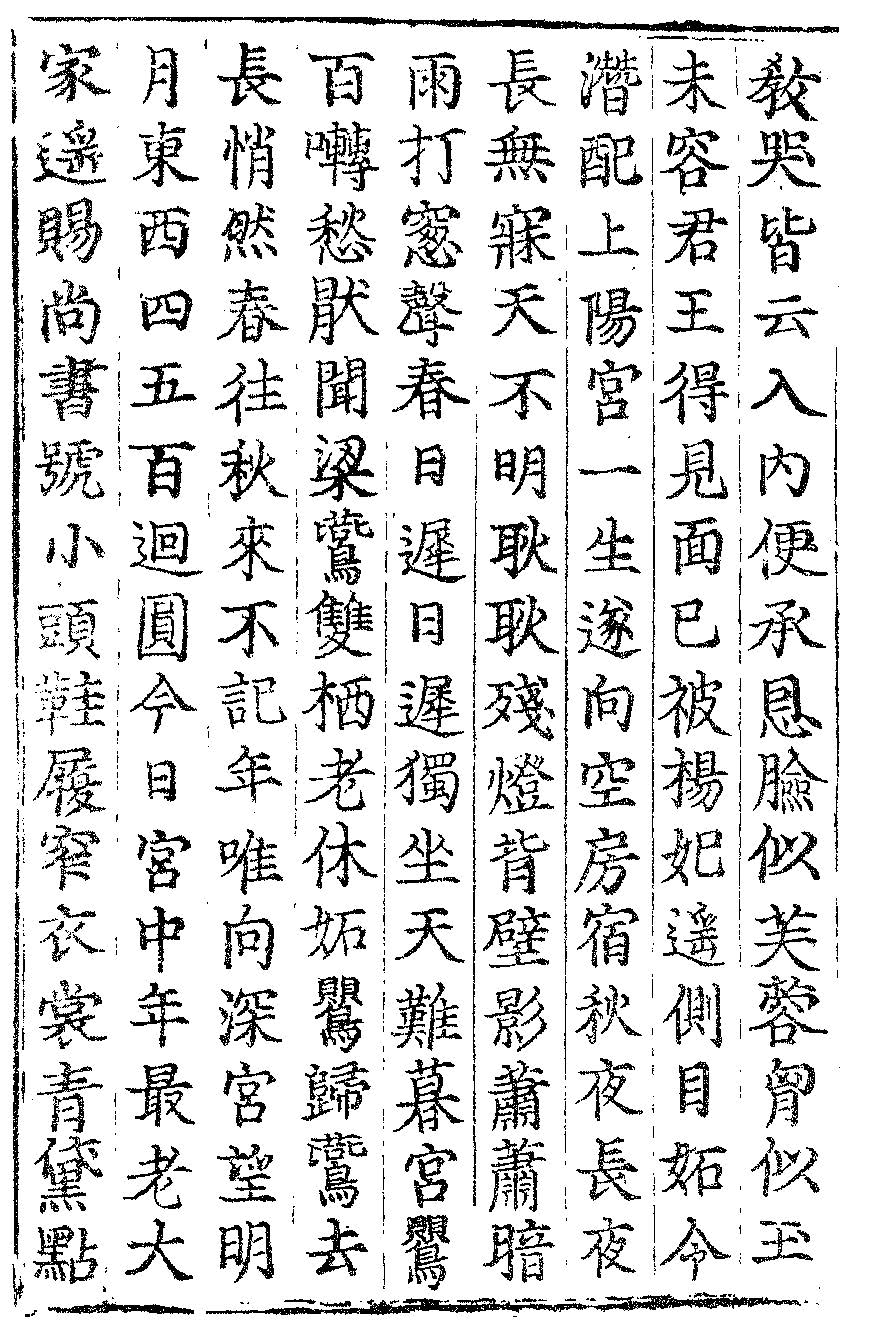 教哭皆云入内便承恩臉似芙蓉胷似玉
未容君王得見面已被楊妃遥側目妬令
潛配上陽宮一生遂向空房宿秋夜長夜
長無寐天不明耿耿殘燈背壁影蕭蕭暗
雨打窓聲春日遲日遲獨坐天難暮宮鸎
百囀愁猒聞梁鷰雙栖老休妬鸎歸鷰去
長悄然春往秋來不記年唯向深宮望明
月東西四五百迴圓今日宮中年最老大
家遥賜尚書號小頭鞋履窄衣裳青黛點